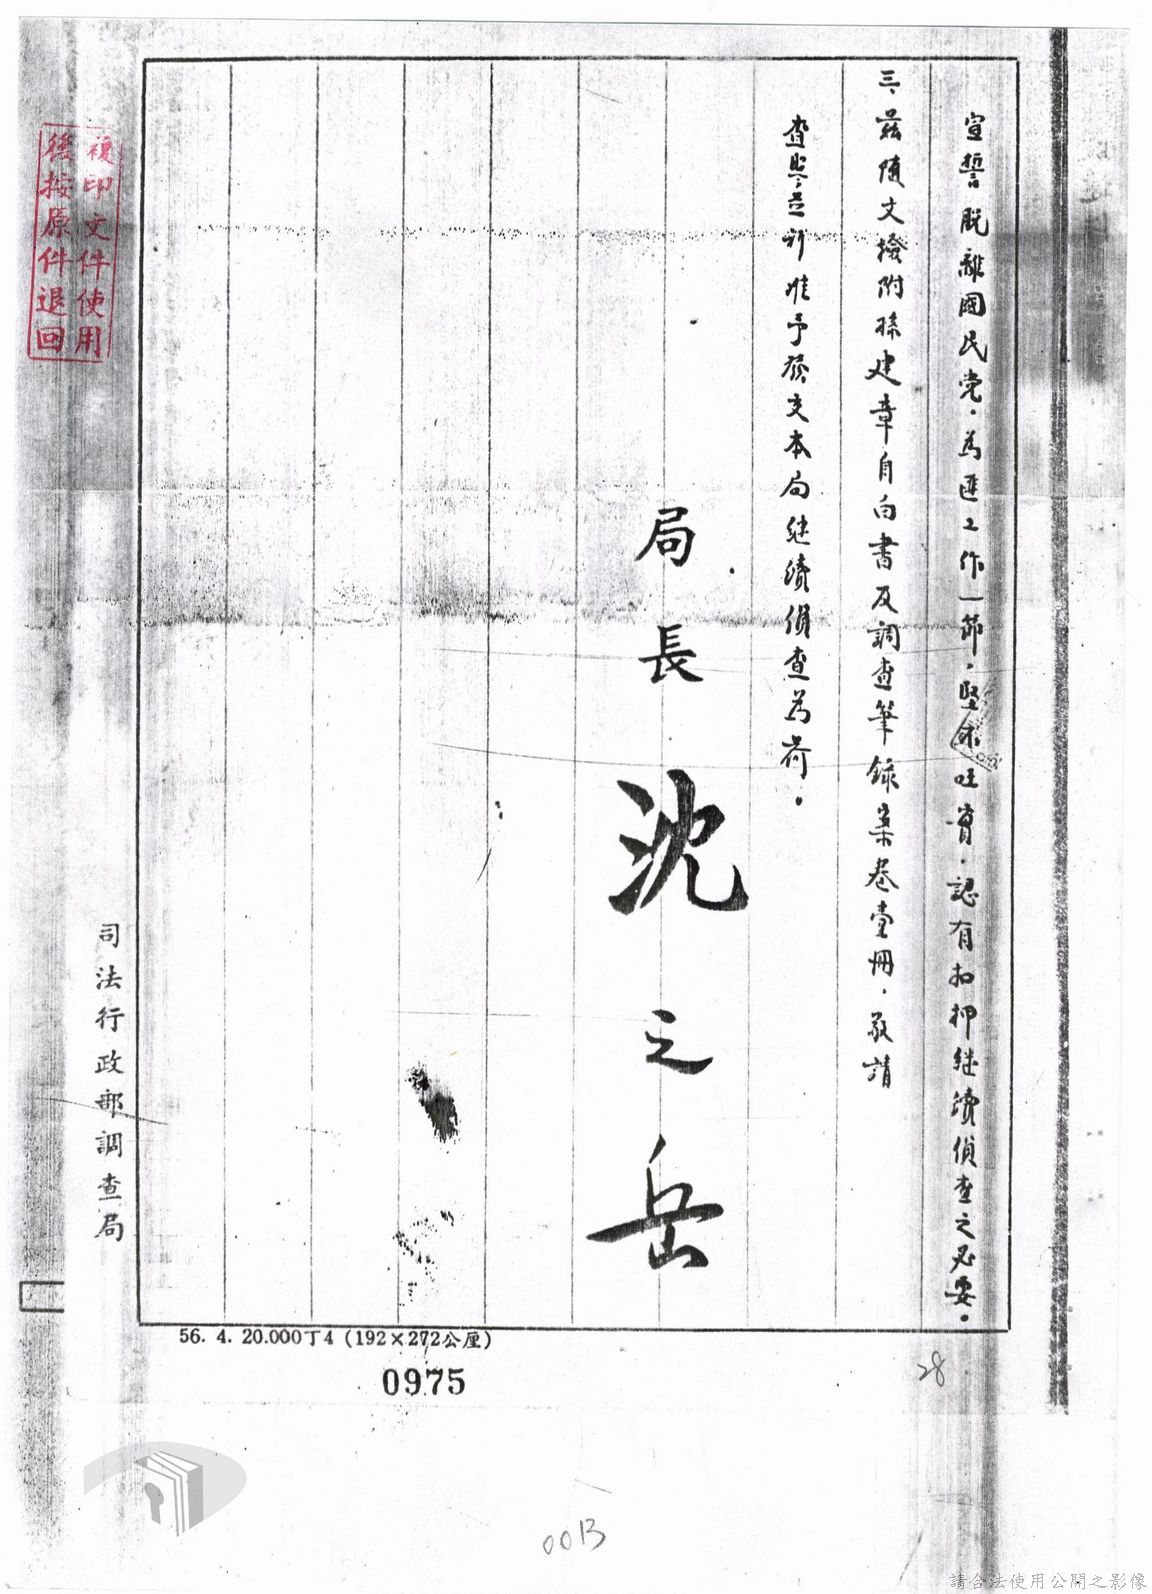 宣誓脫離國民党，為匪工作一節，堅未吐實，認有扣押継續偵查之必要。
三、茲隨文撥附孫建章自白書及調查筆錄案卷壹冊，敬請
查照並祈准予發交本局継續偵查為荷。
局長沈之岳
司法行政部調查局
複印文件使用
後按原件退回
56. 4. 20.000丁4 (192×272公厘)
0975
28
0013
請合法使用公開之影像